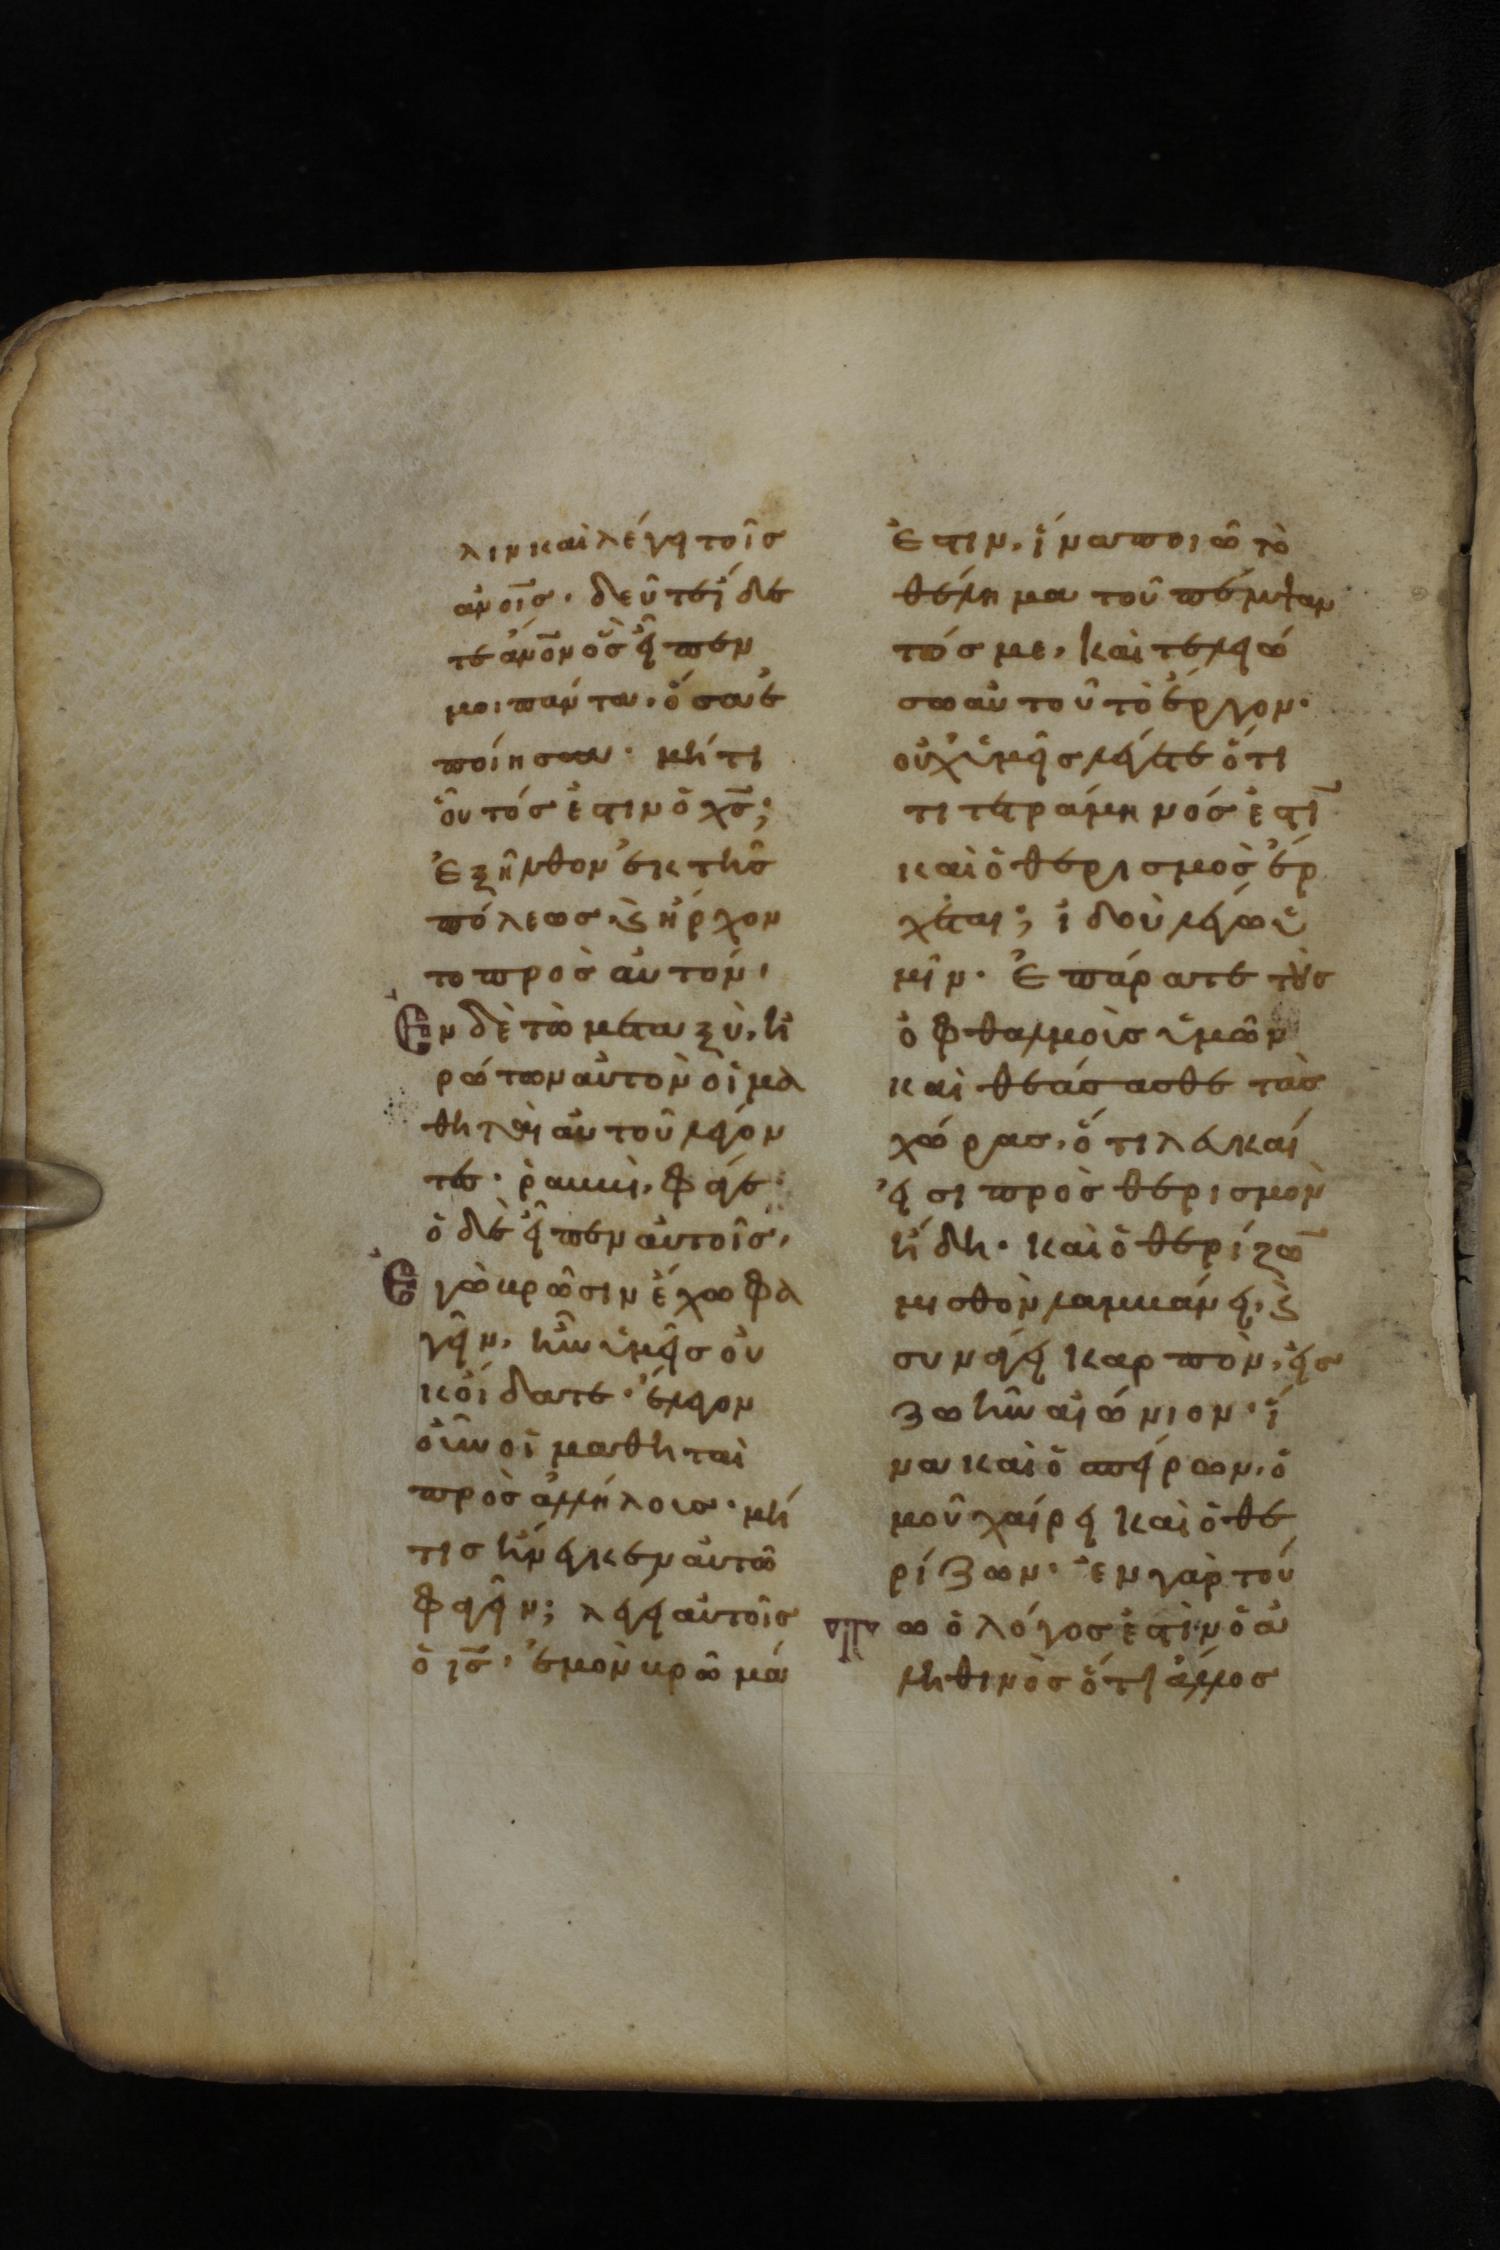 λιν καὶ λέγει τοῖς
ἀνοῖς· δεῦτε ἴδε
τε ἄνον ὃς εἶπεν
μοι πάντα, ὅσα ἐ
ποίησα· μήτι
οὗτός ἐστιν ὁ χς;
Ἐξῆλθον ἐκ τῆς
πόλεως, ϗ ἤρχον
το πρὸς αὐτόν,
Ἐν δὲ τῶ μεταξὺ, ἠ
ρώτων αὐτὸν οἱ μα
θηταὶ αὐτοῦ λέγον
τες· ῥαββὶ, φάγε·
ὁ δὲ εἶπεν αὐτοῖς,
Ἐγὼ βρῶσιν ἔχω φα
γεῖν, ἣν ὑμεῖς οὐ
κ οἴδατε· ἔλεγον
οὖν οἱ μαθηταὶ
πρὸς ἀλλήλους· μή
τις ἤνεγκεν αὐτῶ
φαγεῖν; λέγει αὐτοῖς
ὁ ις, ἐμὸν βρῶμά
ἐστιν, ἵνα ποιῶ τὸ
θέλημα τοῦ πέμψαν
τός με, καὶ τελειώ
σω αὐτοῦ τὸ ἔργον·
οὐχ ὑμεῖς λέγετε ὅτι
τι τετράμηνός ἐστι
καὶ ὁ θερισμὸς ἔρ
χεται; ἰδοὺ λέγω ὑ
μῖν· Ἐπάρατε τοὺς
ὀφθαλμοὺς ὑμῶν
καὶ θεάσασθε τὰς
χώρας, ὅτι λευκαί
εἰσι πρὸς θερισμὸν
ἤδη· καὶ ὁ θερίζω
μισθὸν λαμβάνει, ϗ
συνάγει καρπὸν, εἰς
ζωὴν αἰώνιον· ἵ
να καὶ ὁ σπείρων, ὁ
μοῦ χαίρη καὶ ὁ θε
ρίζων· ἐν γὰρ τού
τω ὁ λόγος ἐστὶν ὁ ἀ
ληθινὸς ὅτι ἄλλος